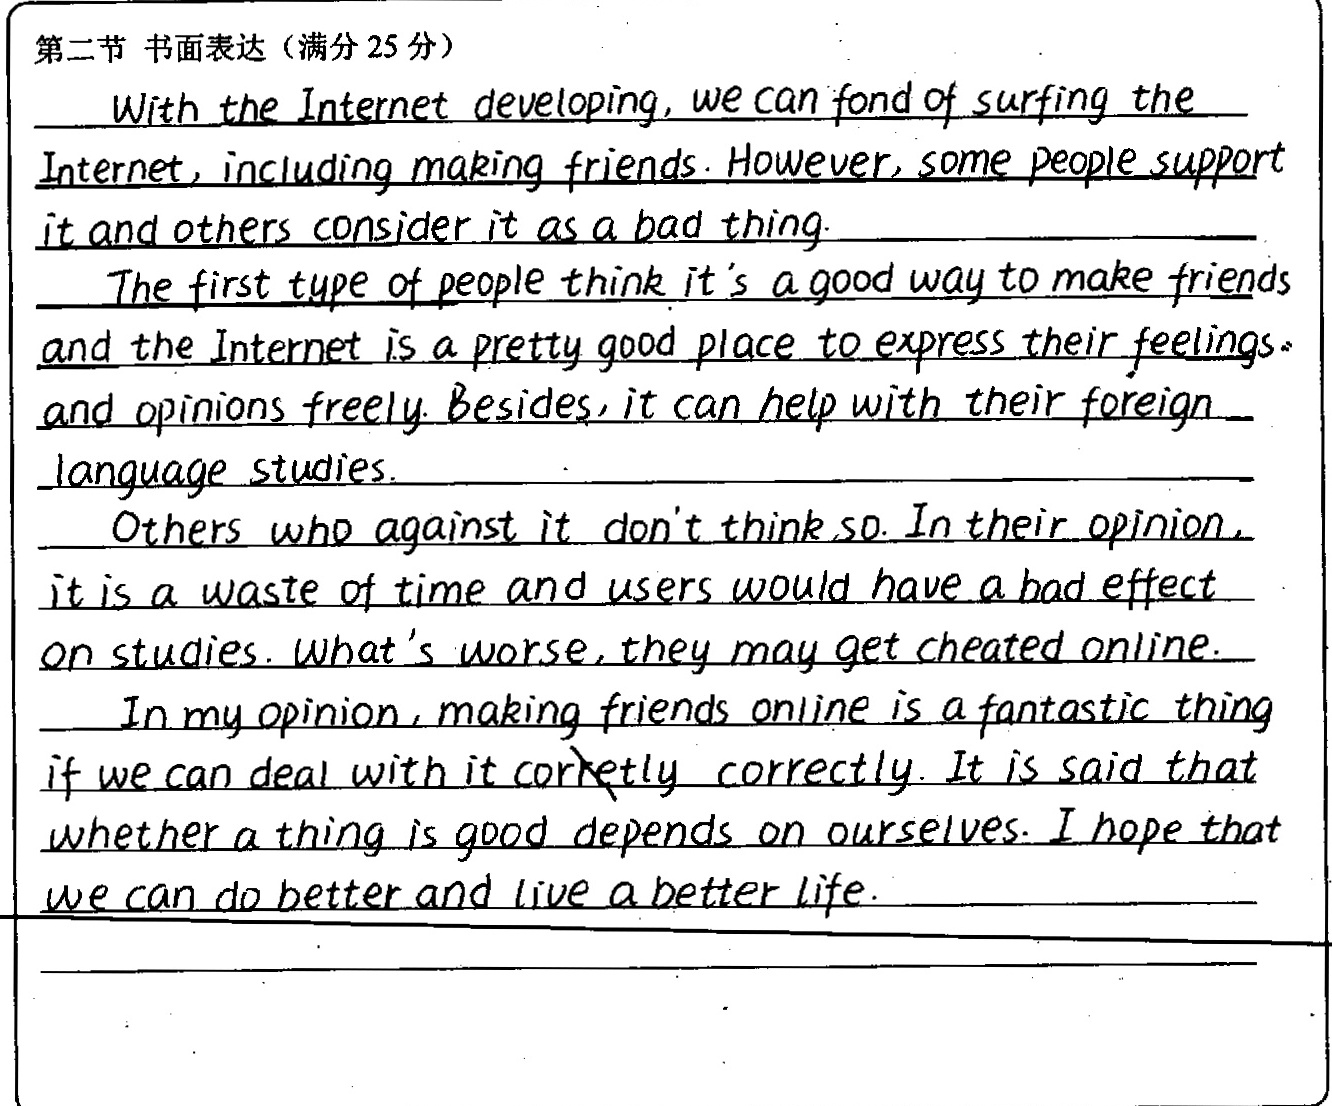 第二节 书面表达（满分 25 分）
With the Internet developing, we can fond of surfing the
Internet, including making friends. However, some people support
it and others consider it as a bad thing.
The first type of people think it's a good way to make friends
and the Internet is a pretty good place to express their feelings.
and opinions freely. Besides, it can help with their foreign
language studies.
Others who against it don't think so. In their opinion,
it is a waste of time and users would have a bad effect
on studies. What's worse, they may get cheated online.
In my opinion, making friends online is a fantastic thing
if we can deal with it correctly. It is said that
whether a thing is good depends on ourselves. I hope that
we can do better and live a better life.